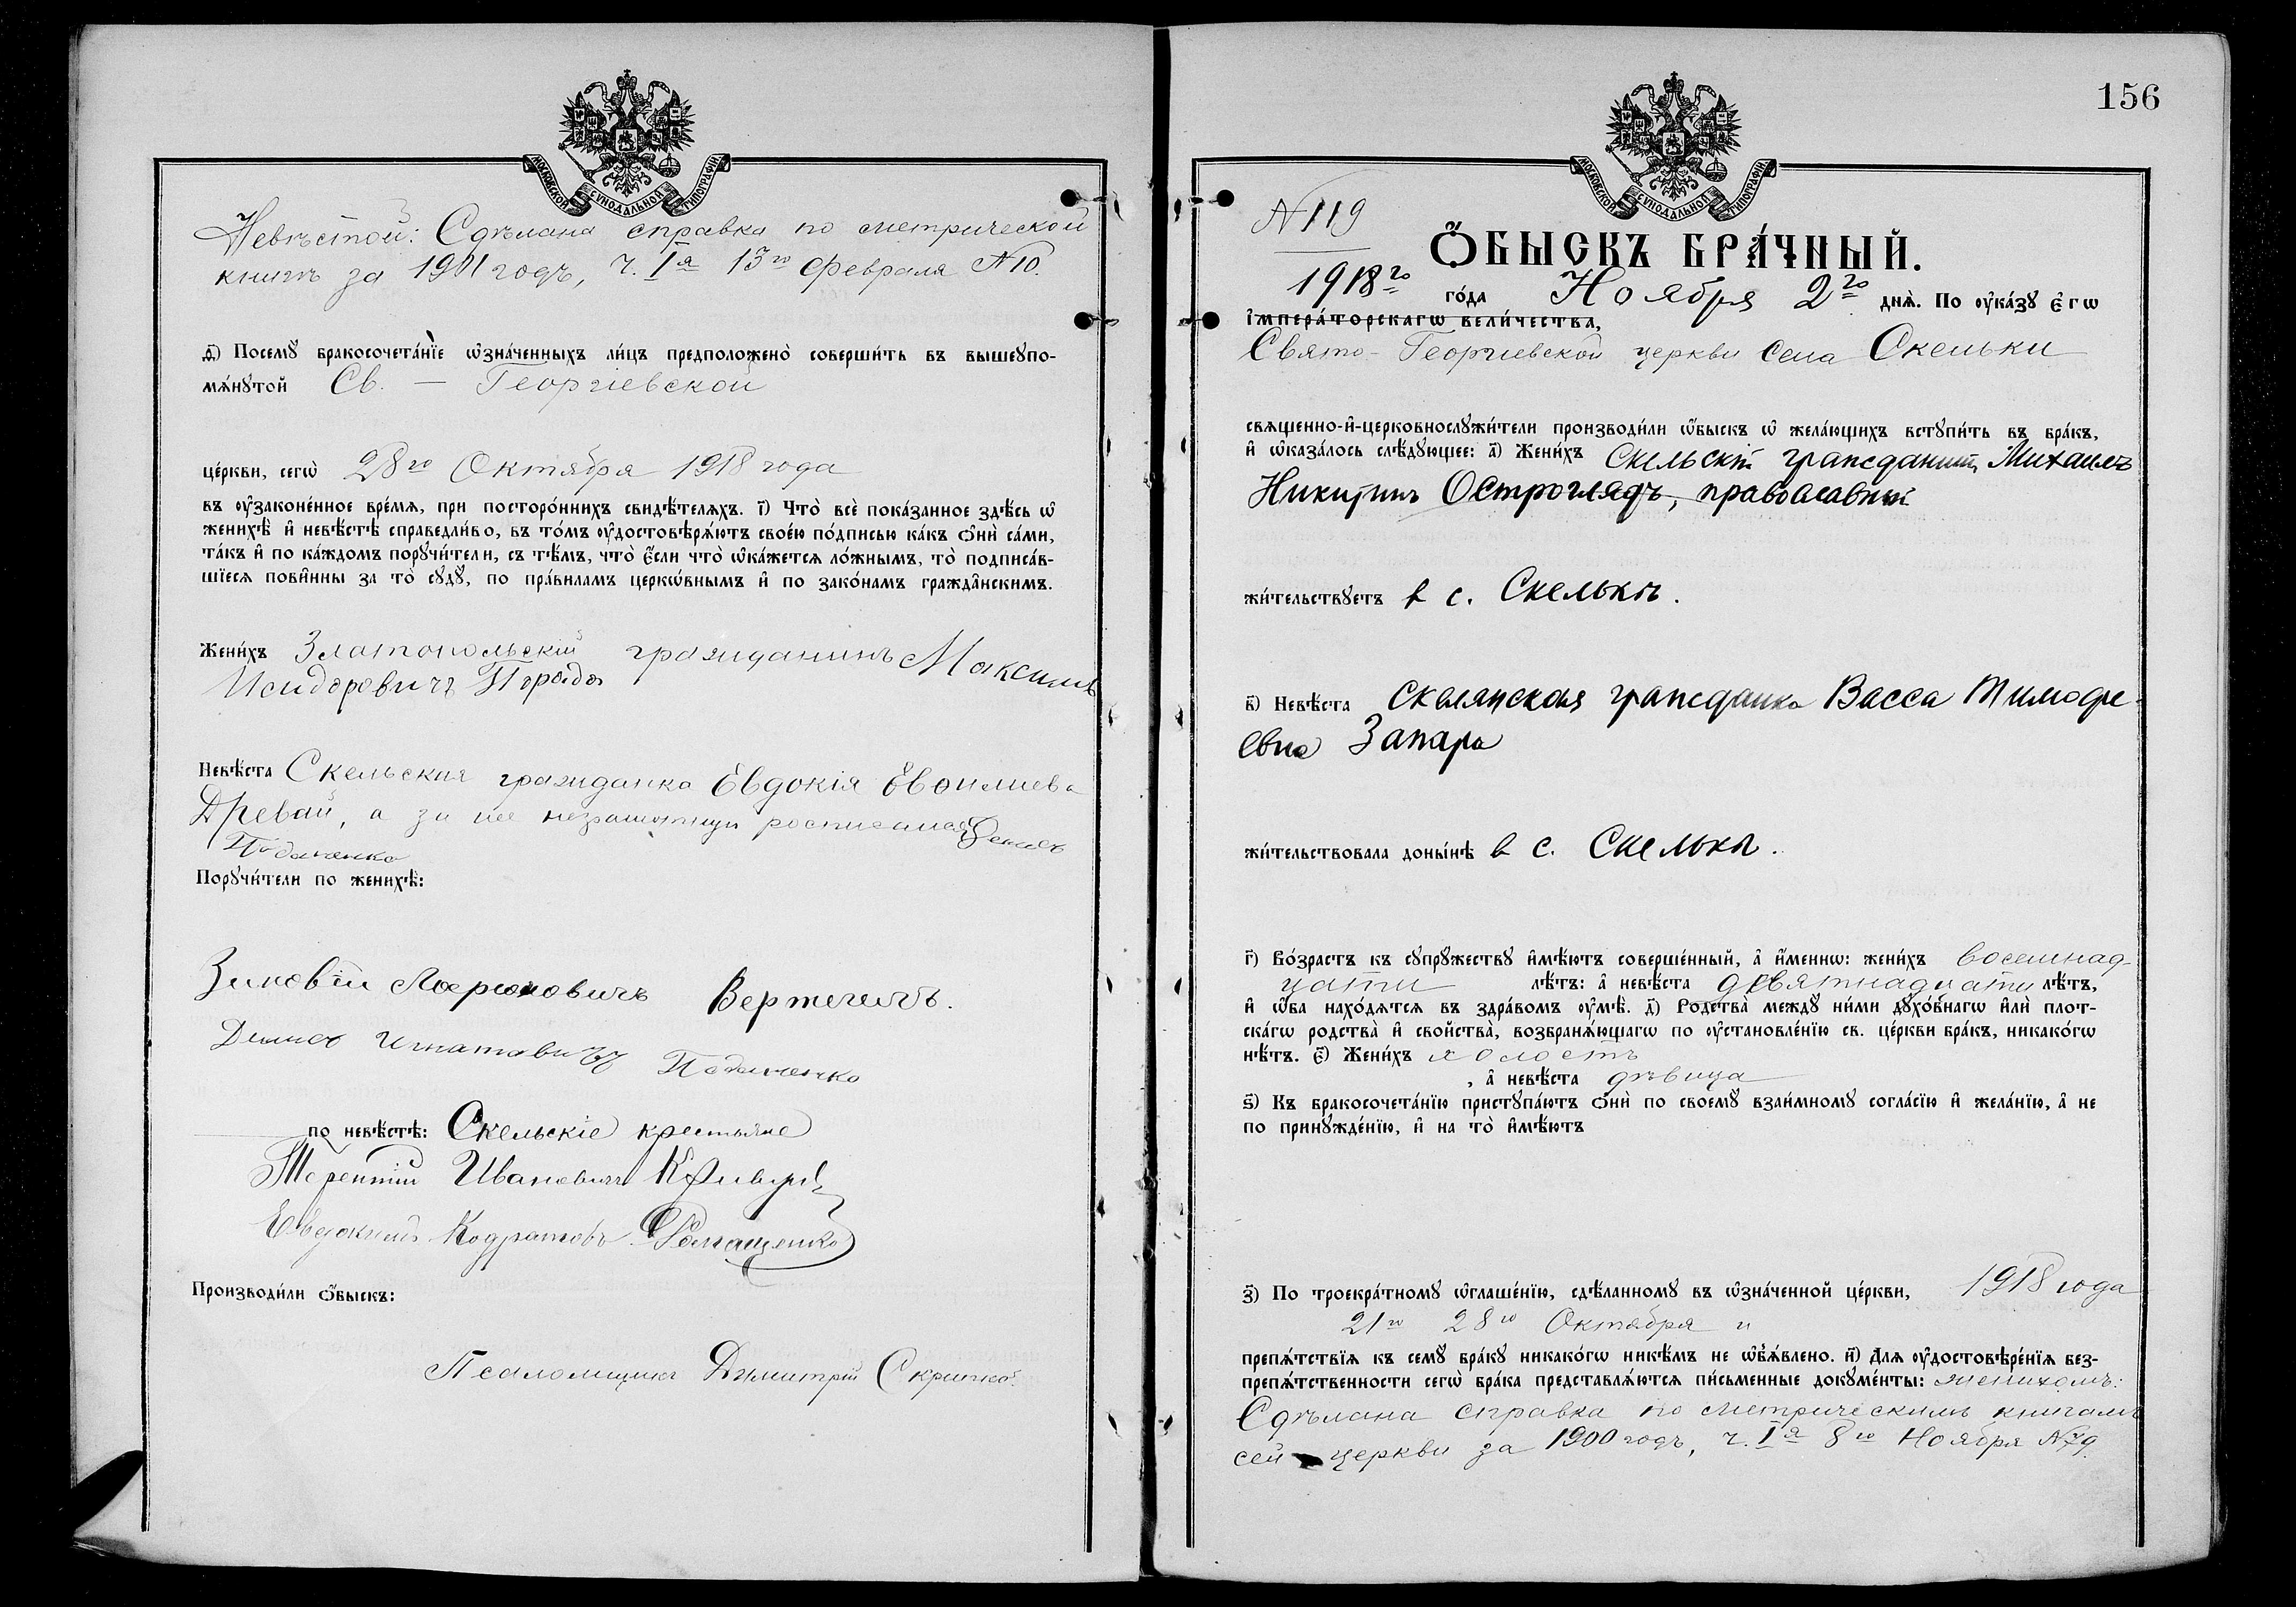 МОСКОВСКОЙ СУНОДАЛЬНОЙ ТИПОГРАФІИ
Невѣстой: Сдѣлана справка по метрической
книгѣ за 1901 годъ, ч. Iя 13го февраля №10.
д҃) Посемꙋ бракосочета́нїе ѡ҆зна́ченныхъ ли́цъ предположено̀ соверши́ть въ вышеꙋпо-
мѧ́нꙋтой Св. — Георгіевской
це́ркви, сегѡ̀ 28го Октября 1918 года
въ ᲂу҆законе́нное вре́мѧ, при посторо́ннихъ свидѣ́телѧхъ. і҃) Что̀ всѐ пока́занное здѣ́сь ѡ҆
женихѣ̀ и҆ невѣ́стѣ справедли́во, въ то́мъ ᲂу҆достовѣрѧ́ютъ свое́ю по́дписью ка́къ ѻ҆нѝ са́ми,
та́къ и҆ по ка́ждомъ порꙋчи́тели, съ тѣ́мъ, что̀ є҆́сли что̀ ѡ҆ка́жетсѧ ло́жнымъ, то̀ подписа́в-
шїесѧ пови́нны за то̀ сꙋдꙋ̀, по пра́виламъ церкѡ́внымъ и҆ по зако́намъ гражда̂нскимъ.
Жени́хъ Златопольскій гражданинъ Максимъ
Исидоровичъ Порада
Невѣ́ста Скельская гражданка Евдокія Евѳиміева
Древаи, а за нее неграмотную росписался Демидъ
Порꙋчи́тели по женихѣ̀:
Зиновій Вертегелъ.
Игнатовичъ
по невѣ́стѣ: Скельскіе крестьяне
Терентій Ивановичъ
Евдокимъ Кодратовъ Ромащенко
Производи́ли ѻ҆́быскъ:
Псаломщикъ Димитрій
156
МОСКОВСКОЙ СУНОДАЛЬНОЙ ТИПОГРАФІИ
№119
Ѻ҆́БЫСКЪ БРА́ЧНЫЙ.
1918го го́да Ноября 2го днѧ̀. По ᲂу҆ка́зꙋ є҆гѡ̀
і҆мпера́торскагѡ вели́чества,
Свято-Георгіевской церкви села Скельки
свѧщенно-и҆-церковнослꙋжи́тели производи́ли ѡ҆́быскъ ѡ҆ жела́ющихъ встꙋпи́ть въ бра́къ,
и҆ ѡ҆каза́лось слѣ́дꙋющее: а҃) Жени́хъ Скельскій гражданинъ Михаилъ
Никитинъ Остроглядъ, православный
жи́тельствꙋетъ в с. Скелькѣ.
в҃) Невѣ́ста Скелянская гражданка Васса Тимофе-
евна Запара
жи́тельствовала доны́нѣ в с. Скелькѣ.
г҃) Во́зрастъ къ сꙋпрꙋ́жествꙋ и҆мѣ́ютъ соверше́нный, а҆ и҆́меннѡ: жени́хъ восемнад-
цати лѣ́тъ: а҆ невѣ́ста девятнадцати лѣ́тъ,
и҆ ѡ҆́ба нахо́дѧтсѧ въ здра́вомъ ᲂу҆мѣ̀. д҃) Родства̀ междꙋ ни́ми дꙋхо́внагѡ и҆лѝ плот-
ска́гѡ родства̀ и҆ сво́йства̀, возбранѧ́ющагѡ по ᲂу҆становле́нїю св. це́ркви бра́къ, никако́гѡ
нѣ́тъ. є҃) Жени́хъ холостъ
, а҆ невѣ́ста дѣвица
ѕ҃) Къ бракосочета́нїю пристꙋпа́ютъ ѻ҆нѝ по своемꙋ̀ взаи́мномꙋ согла́сїю и҆ жела́нїю, а҆ не
по принꙋжде́нїю, и҆ на то̀ и҆мѣ́ютъ
з҃) По троекра́тномꙋ ѡ҆глаше́нїю, сдѣ́ланномꙋ въ ѡ҆зна́ченной це́ркви, 1918 года
21го 28го Октября и
препѧ́тствїѧ къ семꙋ̀ бра́кꙋ никако́гѡ никѣ́мъ не ѡ҆б̾ѧ́влено. и҃) Длѧ ᲂу҆достовѣре́нїѧ без-
препѧ́тственности сегѡ̀ бра́ка представлѧ́ютсѧ пи́сьменные докꙋме́нты: женихомъ:
Сдѣлана справка по метрическимъ книгамъ
сей церкви за 1900 годъ, ч. Iя 8го Ноября №79.